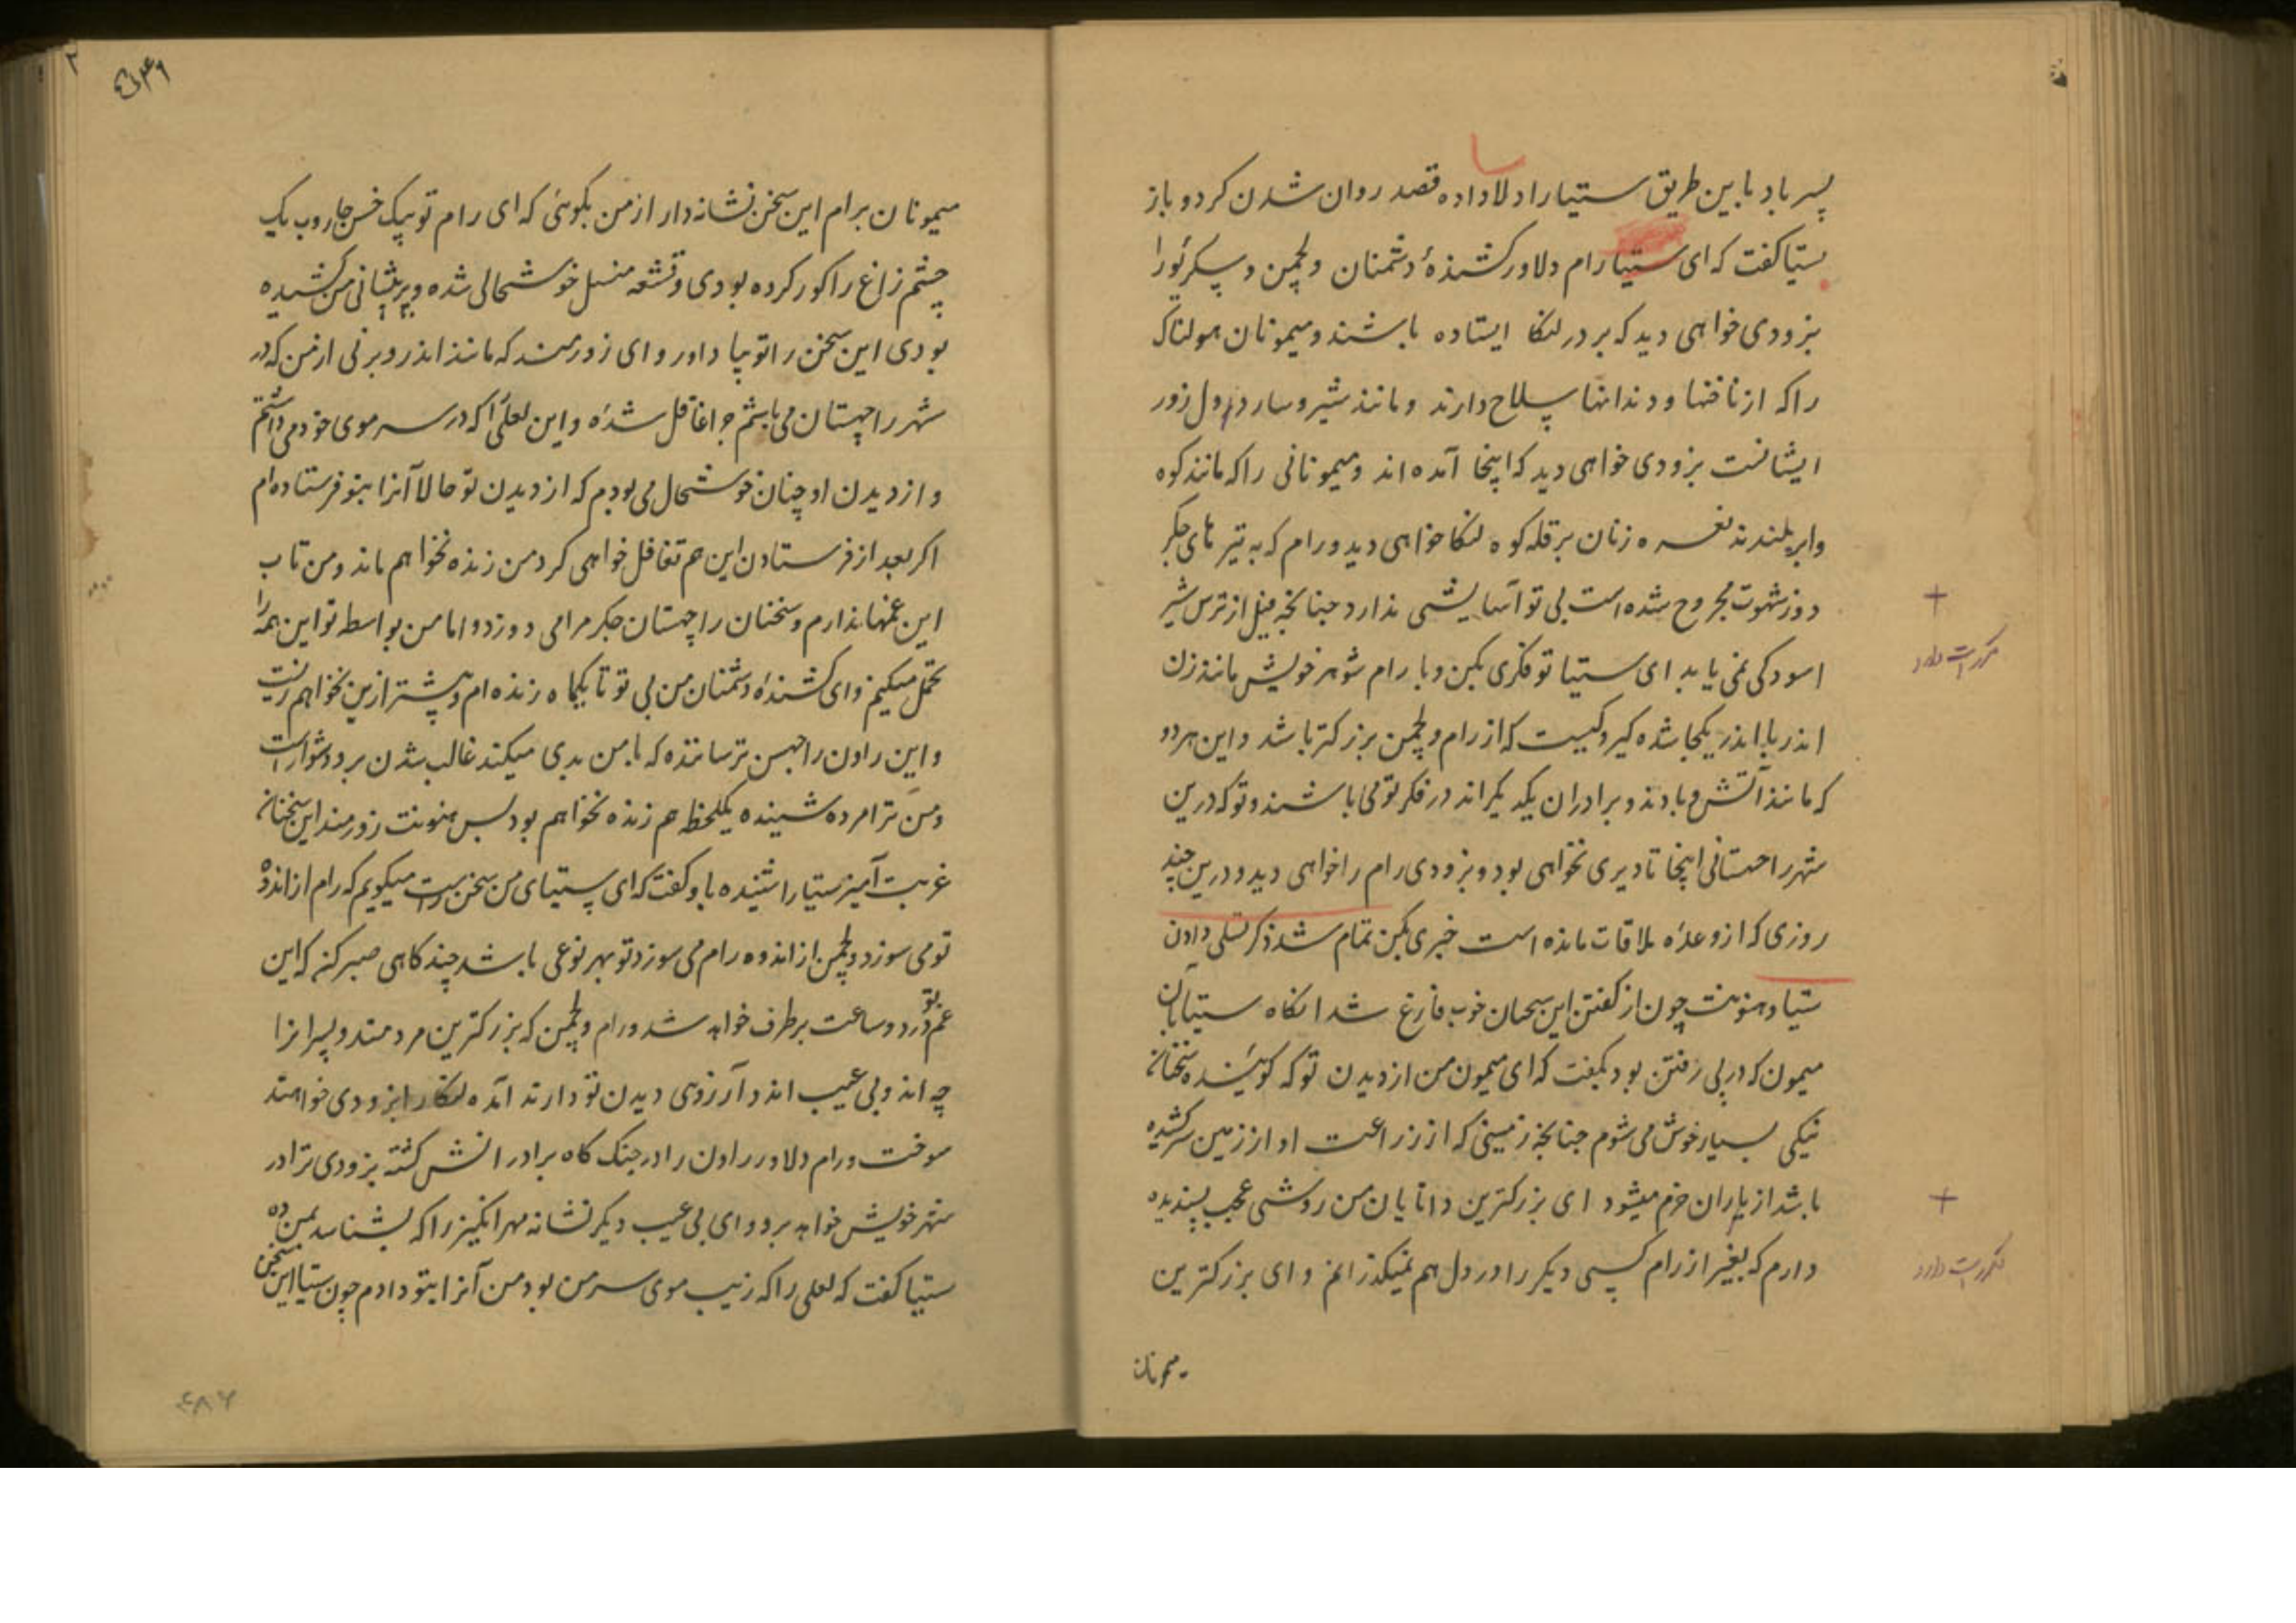 پسر باد باین طریق ستیا را دلاداده قصد روان شدن کرد و باز
بستیا گفت که ای ستیا رام دلاور کشندهٔ دشمنان و لچمن و سکریو را
بزودی خواهی دید که بر در لنکا ایستاده باشند و میمونان هولناک
را که از ناخنها و دندانها سلاح دارند و مانند شیر و سار دول زور
ایشانست بزودی خواهی دید که اینجا آمده اند و میمونانی را که مانند کوه
و ابر بلندند نعره زنان بر قله کوه لنکا خواهی دید و رام که به تیر های جگر
دوز شهوت مجروح شده است بی تو آسایشی ندارد چنانچه فیل از ترس شیر
اسودکی نمی یابد ای ستیا تو فکری مکن و با رام شوهر خویش مانند زن
اندر با اندر یکجا شده گیر و کیست که از رام و لچمن بزرکتر باشد و این هر دو
که مانند آتش و بادند و برادران یکدیگراند در فکر تو می باشند و تو که درین
شهر راچهستانی اینجا تا دیری نخواهی بود و بزودی رام را خواهی دید و درین چند
روزی که از وعدهٔ ملاقات مانده است خبری مکن تمام شد ذکر تسلی دادن
ستیا و هنونت چون از گفتن این سخنان خوب فارغ شد انگاه ستیا بان
میمون که در پی رفتن بود بگفت که ای میمون من از دیدن تو که گویندهٔ سخنان
نیکی بسیار خوش می شوم چنانچه زمینی که از زراعت او از زمین سر کشیده
باشد از باران خرم میشود ای بزرکترین دانایان من روشی عجب پسندیده
دارم که بغیر از رام کسی دیگر را در دل هم نمیگذرانم و ای بزرکترین
میمونان
مکرر است دارد
مکرر است دارد
میمونان برام این سخن نشانه دار از من بگوئی که ای رام تو بیک خس جاروب یک
چشم زاغ را کور کرده بودی و قشقه منسل خوشحالی شده و بر پیشانی من کشیده
بودی این سخن را تو بیاد آور و ای زورمند که مانند اندر و برنی از من که در
شهر راچهستان می باشم چرا غافل شدهٔ و این لعلی را که در سر موی خود می داشتم
و از دیدن او چنان خوشحال می بودم که از دیدن تو حالا آنرا بتو فرستاده ام
اگر بعد از فرستادن این هم تغافل خواهی کرد من زنده نخواهم ماند و من تاب
این غمها ندارم و سخنان راچهستان جگر مرا می دوزد و اما من بواسطه تو این همه را
تحمل میکنم و ای کشندهٔ دشمنان من بی تو تا یکماه زنده ام و بیشتر ازین نخواهم زیست
و این راون راچهس ترساننده که با من بدی میکند غالب شدن بر و دشوار است
و من ترا مرده شنیده یکلحظه هم زنده نخواهم بود پس هنونت زورمند این سخنان
غربت آمیز ستیا را شنیده باو گفت که ای ستیای من سخن راست میگویم که رام از اندوه
تو می سوزد و لچمن از اندوه رام می سوزد تو بهر نوعی باشد چند گاهی صبر کن که این
غم تو در دو ساعت برطرف خواهد شد و رام و لچمن که بزرکترین مردمند و پسران را
چه اند و بی عیب اند و آرزوی دیدن تو دارند آمده لنکا را بزودی خواهند
سوخت و رام دلاور راون را در جنگ گاه برادرانش کشته بزودی ترا در
شهر خویش خواهد برد و ای بی عیب دیگر نشانه مهر انگیز را که بشناسد بمن ده
ستیا گفت که لعلی را که زیب موی سر من بود من آنرا بتو دادم چون ستیا این سخن
۴۸۶